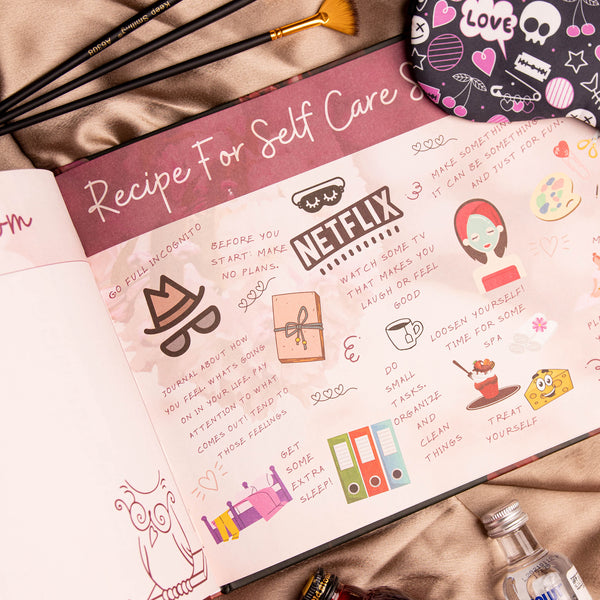 Keep Smiling® A0308
LOVE
Recipe For Self Care
GO FULL INCOGNITO
BEFORE YOU
START: MAKE
NO PLANS.
NETFLIX
WATCH SOME TV
THAT MAKES YOU
LAUGH OR FEEL
GOOD
MAKE SOMETHING
IT CAN BE SOMETHING
AND JUST FOR FUN.
JOURNAL ABOUT HOW
YOU FEEL. WHAT'S GOING
ON IN YOUR LIFE. PAY
ATTENTION TO WHAT
COMES OUT! TEND TO
THOSE FEELINGS
LOOSEN YOURSELF!
TIME FOR SOME
SPA
DO
SMALL
TASKS.
ORGANIZE
AND
CLEAN
THINGS
TREAT
YOURSELF
GET
SOME
EXTRA
SLEEP!